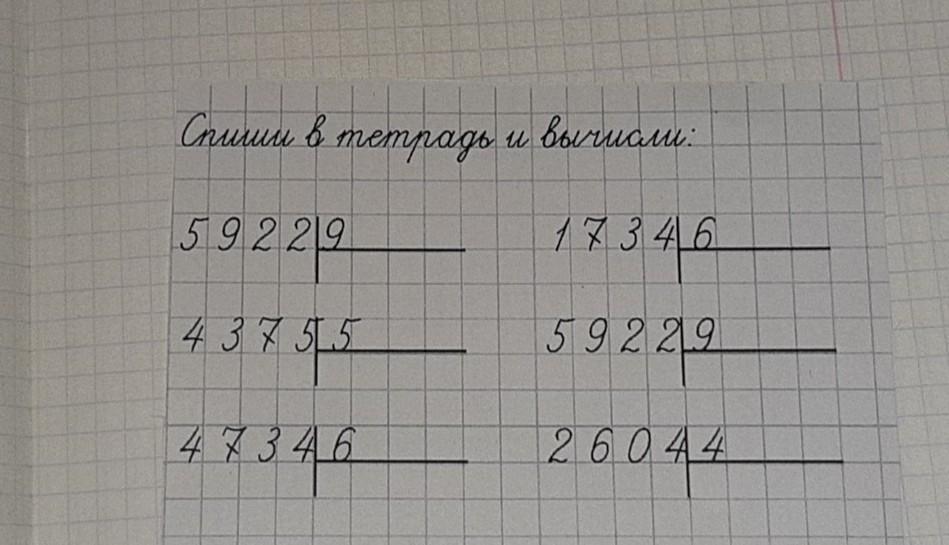 Спиши в тетрадь и вычисли:
5922|9 1734|6
4375|5 5922|9
4734|6 2604|4